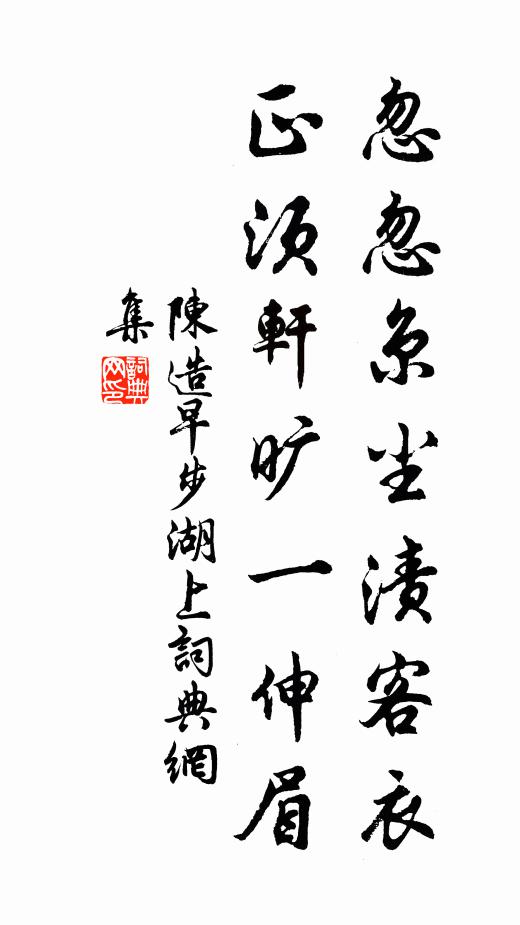 忽忽京尘渍客衣
正须軒旷一伸眉
陳造早步湖上詞典網
集
詞典
网印